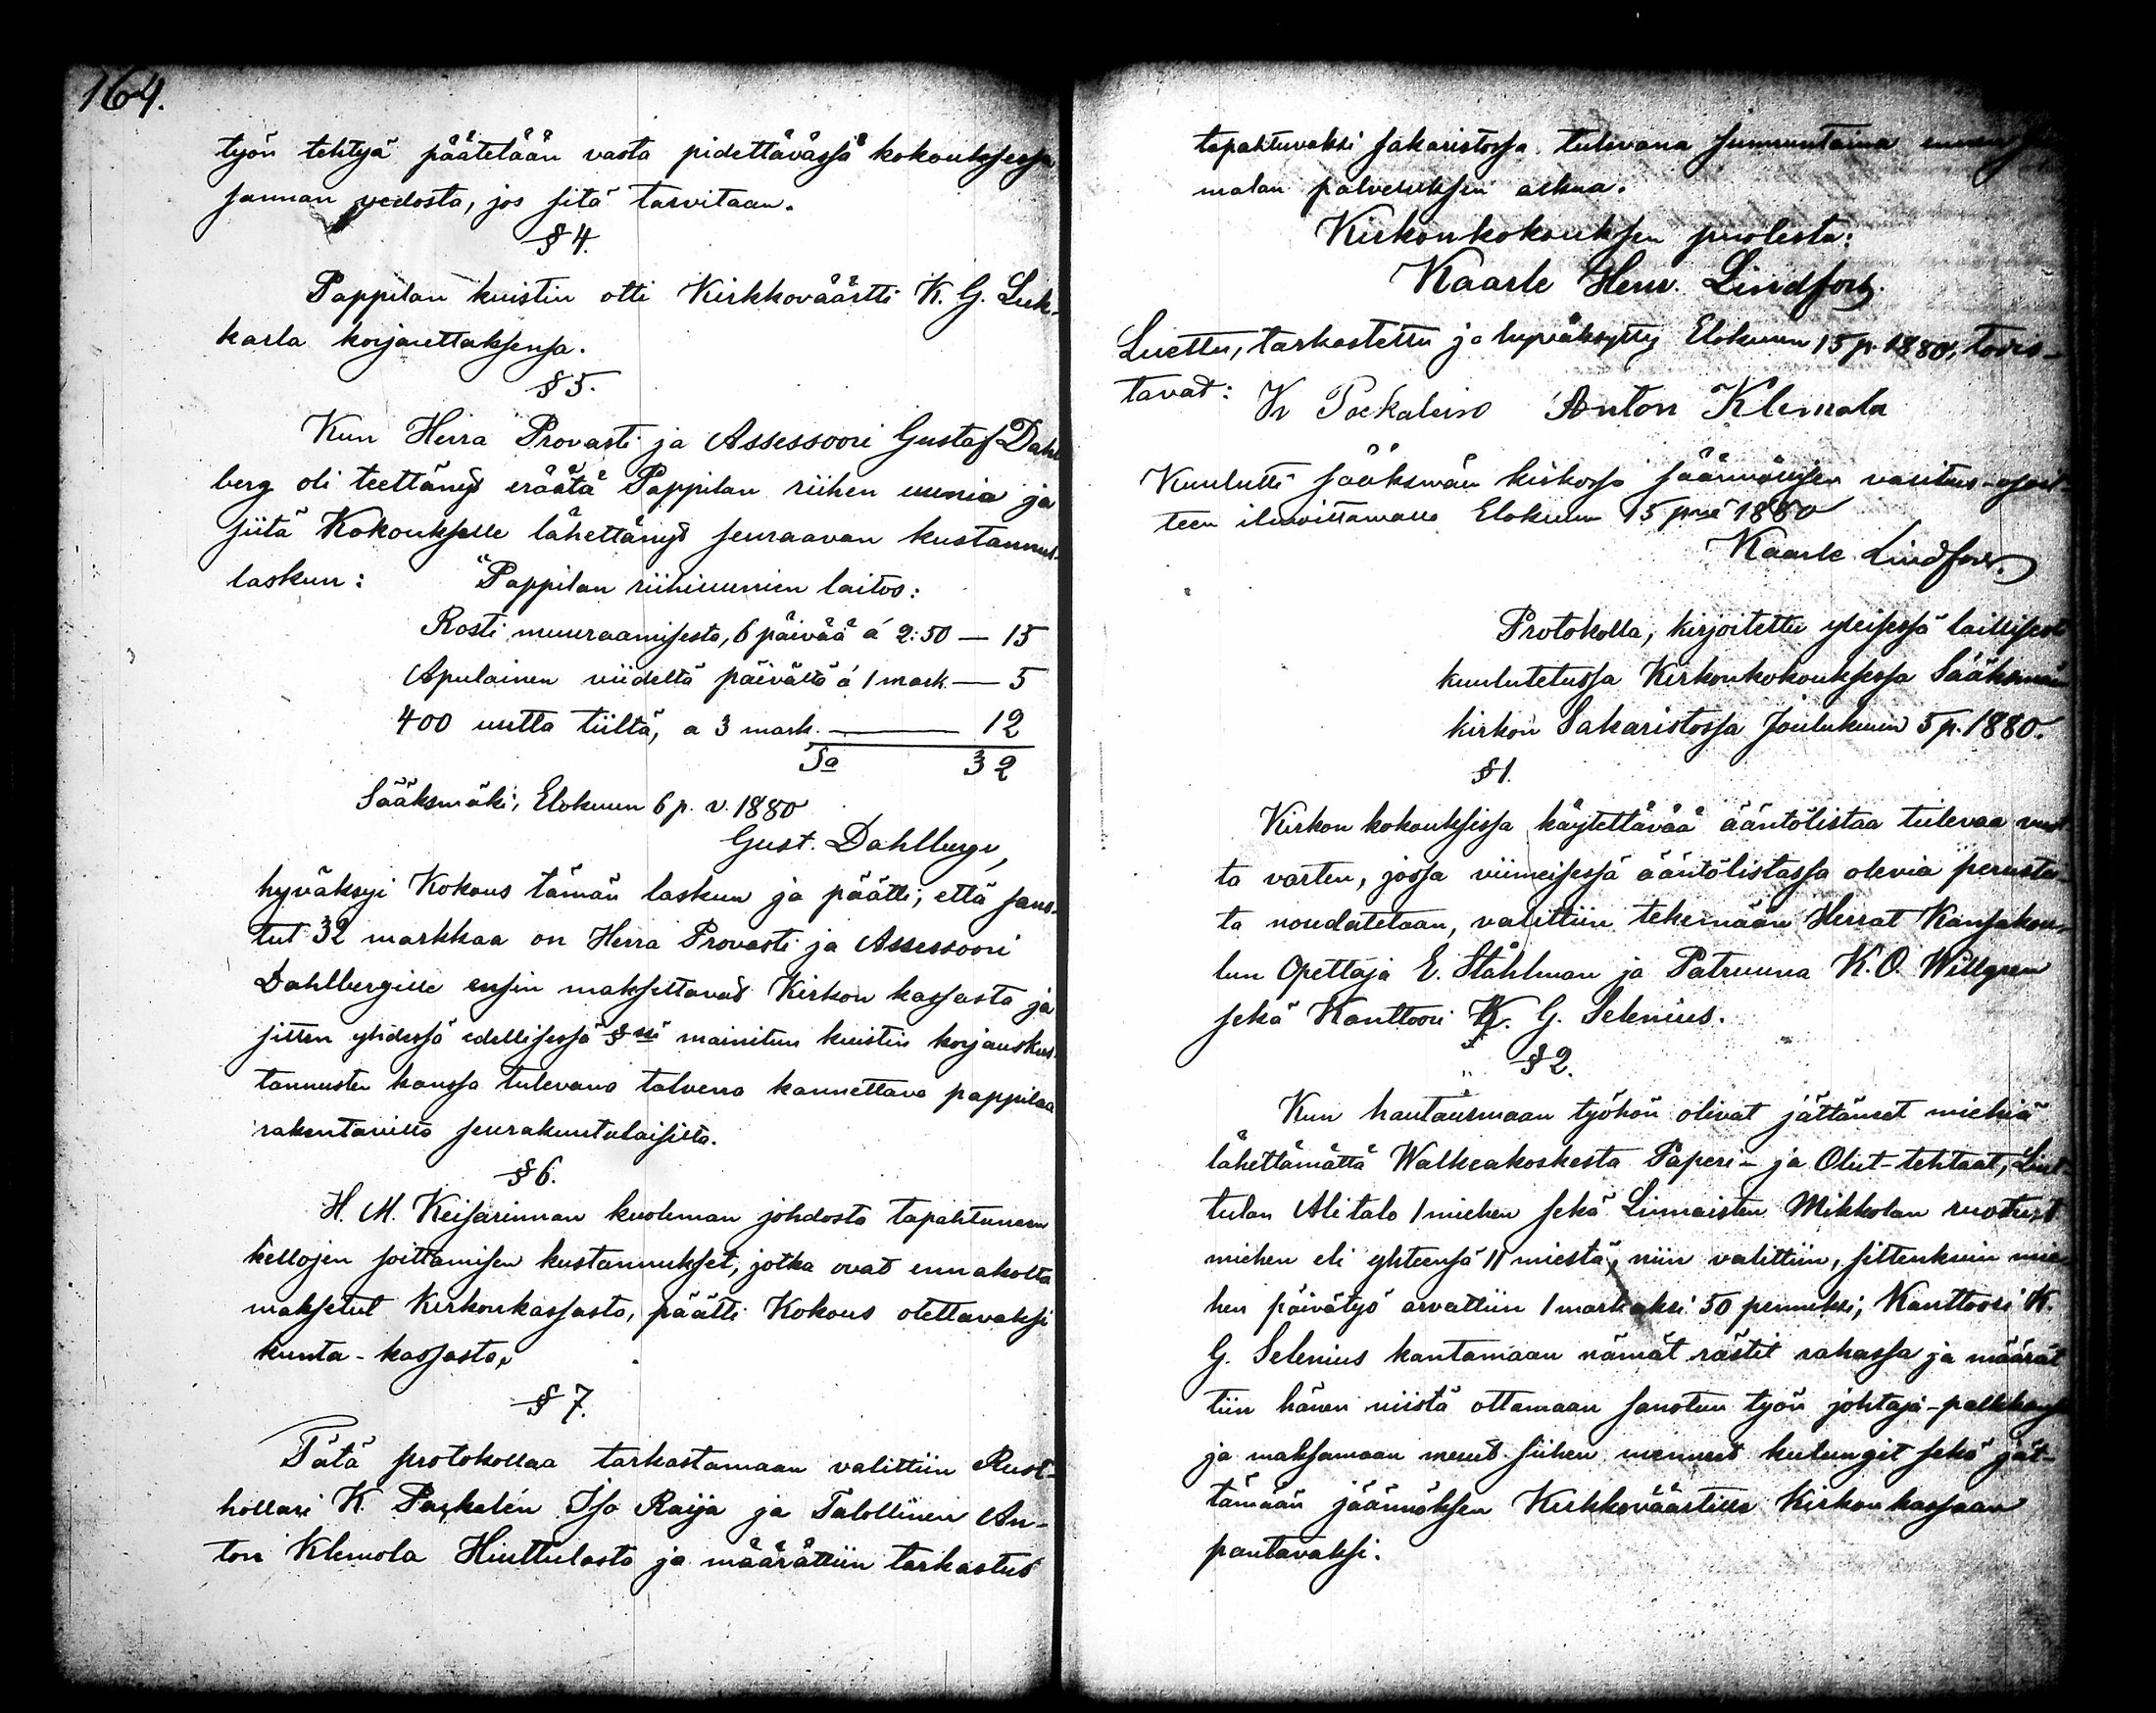 164.
työn tehtyä päätetään vasta pidettävässä kokouksessa
sannan vedosta, jos sitä tarvitaan.
§ 4.
Pappilan kuistin otti Kirkkoväärtti K. G. Luk-
karla korjauttaksensa.
§ 5.
Kun Herra Provasti ja Assessoori Gustaf Dahl
berg oli teettänyt eräätä Pappilan riihen uunia ja
siitä Kokoukselle lähettänyt seuraavan kustannus-
laskun: "Pappilan riihiuunien laitos:
Rosti muuraamisesta, 6 päivää á 2:50 — 15
Apulainen viideltä päivältä á 1 mark. — 5
400 uutta tiiltä, a 3 mark. — 12
Sa 32
Sääksmäki, Elokuun 6 p. v. 1880
Gust. Dahlberg,
hyväksyi Kokous tämän laskun ja päätti, että sano-
tut 32 markkaa on Herra Provasti ja Assessoori
Dahlbergille ensin maksettavat Kirkon kassasta ja
sitten yhdessä edellisessä §ssä mainitun kuistin korjauskus-
tannusten kanssa tulevana talvena kannettava pappilaa
rakentavilta seurakuntalaisilta.
§ 6.
H. M. Keisarinnan kuoleman johdosta tapahtuneen
kellojen soittamisen kustannukset, jotka ovat ennakolta
maksetut Kirkonkassasta, päätti Kokous otettavaksi
kunta-kassasta.
§ 7.
Tätä protokollaa tarkastamaan valittiin Rust-
hollari K. Packalén Iso Raija ja Talollinen An-
ton Klemola Huittulasta ja määrättiin tarkastus
tapahtuvaksi sakaristossa tulevana sunnuntaina ennen
malan palveluksen alkua.
Kirkonkokouksen puolesta:
Kaarle Henr. Lindfors.
Luettu, tarkastettu ja hyväksytty Elokuun 15 p. 1880, todis-
tavat: K Packalén Anton Klemola
Kuulutti Sääksmäen kirkossa säännöllisen valitus-osoit-
teen ilmoittamalla Elokuun 15 pnä 1880
Kaarle Lindfors.
Protokolla, kirjoitettu yleisessä laillisesti
kuulutetussa Kirkonkokouksessa Sääksmäen
kirkon Sakaristossa Joulukuun 5 p. 1880.
§ 1.
Kirkon kokouksissa käytettävää ääntölistaa tulevaa vuot
ta varten, jossa viimeisessä ääntölistassa olevia perustei-
ta noudatetaan, valittiin tekemään Herrat Kansakou-
lun Opettaja E. Ståhlman ja Patruuna K. O. Willgren
sekä Kanttoori K. G. Selenius.
§ 2.
Kun hautausmaan työhön olivat jättäneet miehiä
lähettämättä Walkeakoskesta Paperi- ja Olut-tehtaat,
tulan Alitalo 1 miehen sekä Linnaisten Mikkolan ruotust
miehen eli yhteensä 11 miestä, niin valittiin, sittenkuin mie
hen päivätyö arvattiin 1 markaksi 50 penniksi, Kanttoori K.
G. Selenius kantamaan nämät rästit rahassa ja määrät
tiin hänen niistä ottamaan sanotun työn johtaja-palkkansa
ja maksamaan muut siihen menneet kulungit sekä jät-
tämään jäännöksen Kirkkoväärtille Kirkon kassaan
pantavaksi.